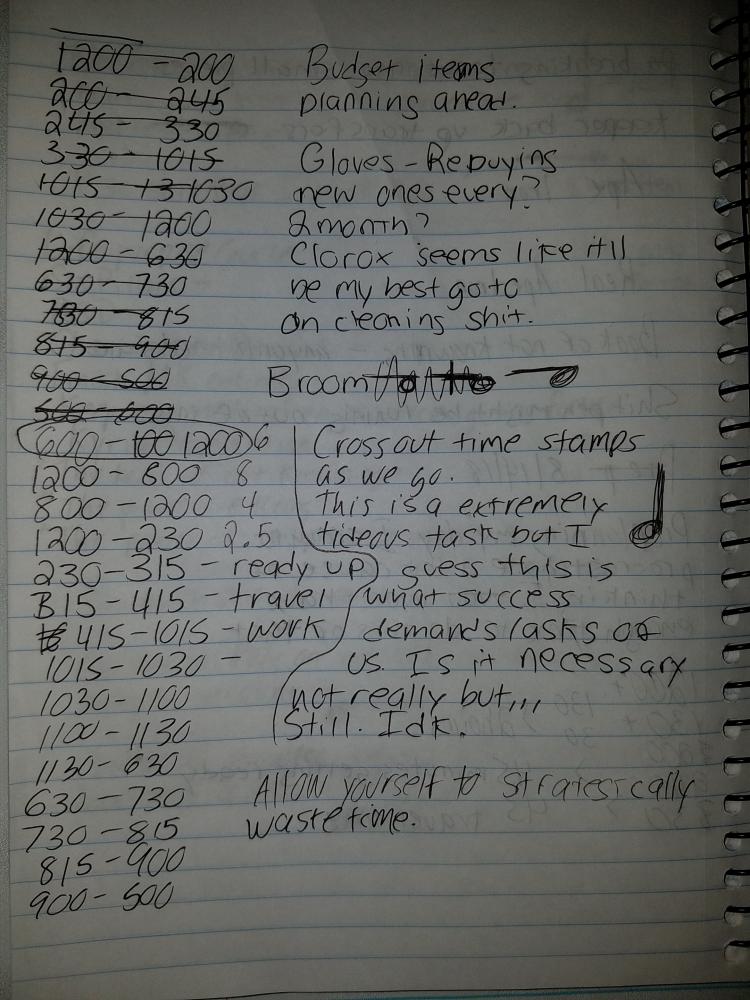 1200 - 200 Budget items
200 - 245 planning ahead.
245 - 330
330 - 1015 Gloves - Rebuying
1015 - 1030 new ones every?
1030 - 1200 2 month?
1200 - 630 Clorox seems like itll
630 - 730 be my best go to
730 - 815 on cleaning shit.
815 - 900
900 - 500 Broom
500 - 600
600 - 100 1200 6 Cross out time stamps
1200 - 800 8 as we go.
800 - 1200 4 This is a extremely
1200 - 230 2.5 tideous task but I
230 - 315 - ready up guess this is
315 - 415 - travel what success
415 - 1015 - work demands/asks of
1015 - 1030 - us. Is it necessary
1030 - 1100 not really but,,,
1100 - 1130 Still. Idk.
1130 - 630
630 - 730 Allow yourself to strategically
730 - 815 waste time.
815 - 900
900 - 500